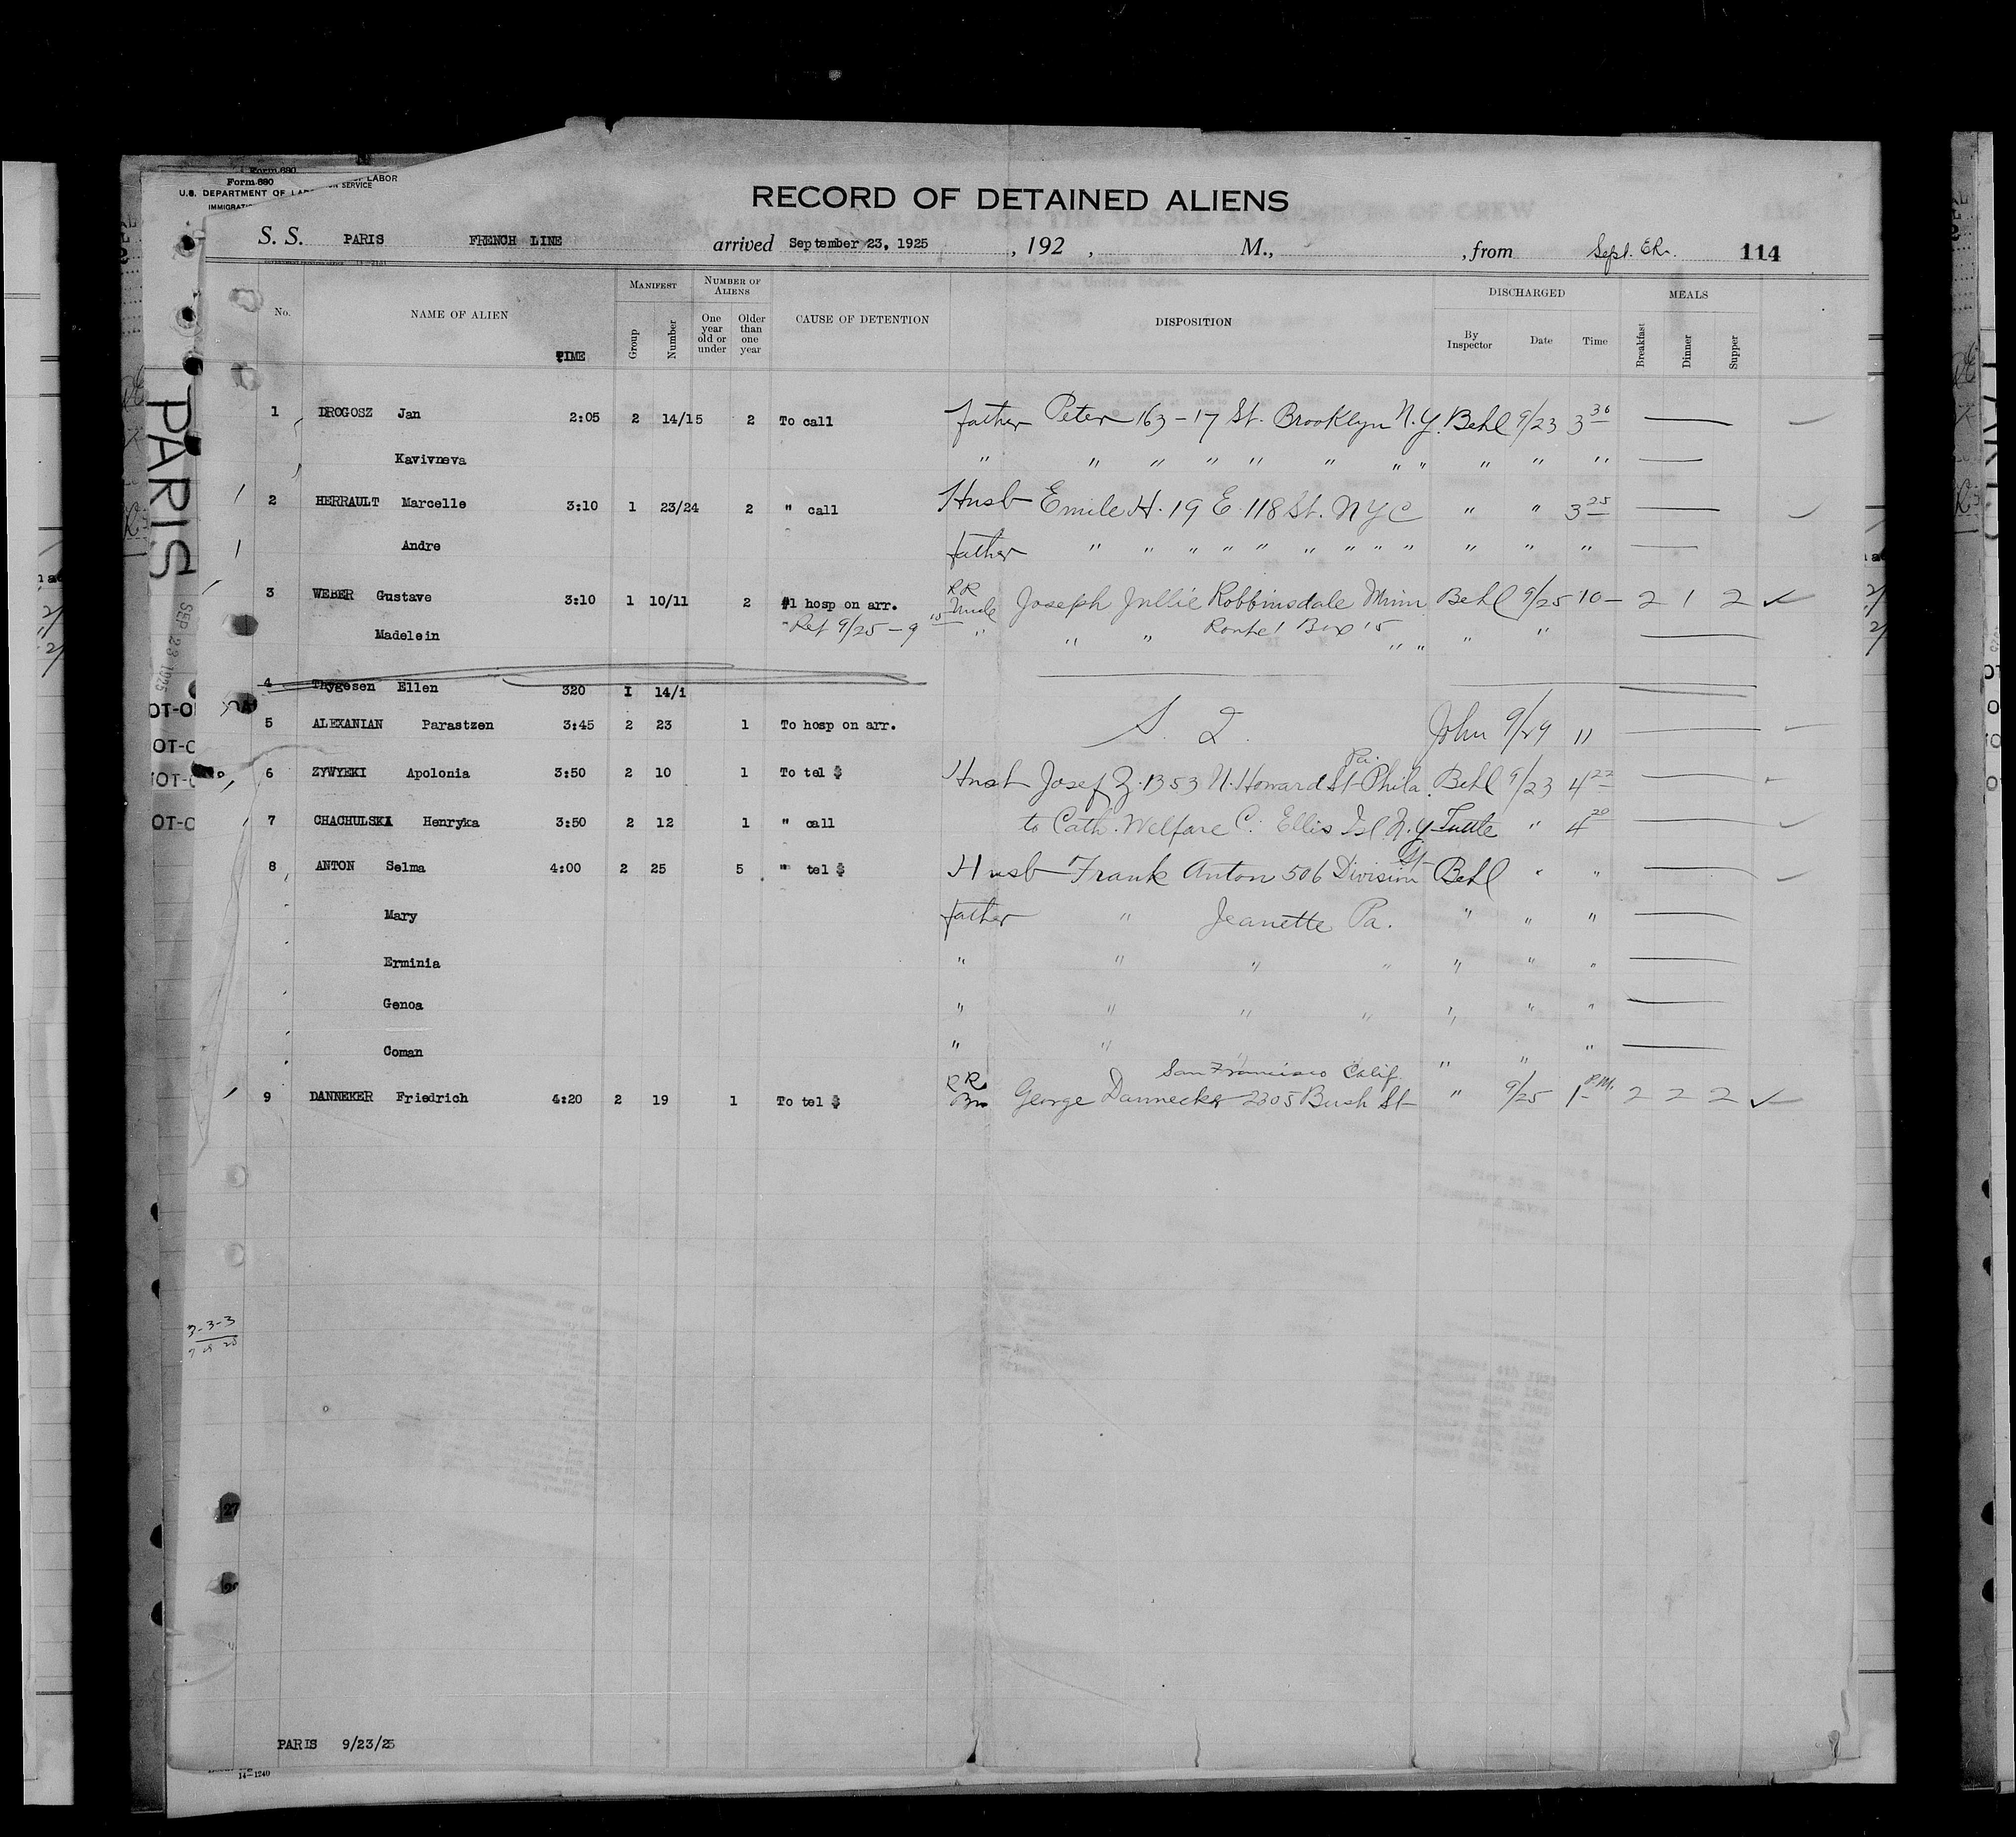 Form 680
U.S. DEPARTMENT OF LABOR
RECORD OF DETAINED ALIENS
S. S. PARIS FRENCH LINE arrived September 23, 1925 , 192 , M., , from Sept. 114
No. NAME OF ALIEN TIME MANIFEST Group Number NUMBER OF ALIENS One year old or under Older than one year CAUSE OF DETENTION DISPOSITION DISCHARGED By Inspector Date Time MEALS Breakfast Dinner Supper
1 DROGOSZ Jan 2:05 2 14/15 2 To call father Peter 163-17 St. Brooklyn N.Y. Behl 9/23 3 30
Kavivneva " " " " " " " " " " "
2 HERRAULT Marcelle 3:10 1 23/24 2 " call Husb Emile H. 19 E. 118 St. NYC " " 3 25
Andre father " " " " " " " " " " " "
3 WEBER Gustave 3:10 1 10/11 2 #1 hosp on arr. RR Uncle Joseph Jullie Robbinsdale Minn Behl 9/25 10- 2 1 2
Madelein Ret 9/25-9 10 " " " Route 1 Box 15 " " " "
4 Thygesen Ellen 320 I 14/1
5 ALEXANIAN Parastzen 3:45 2 23 1 To hosp on arr. S. I. John 9/29 11
6 ZYWYEKI Apolonia 3:50 2 10 1 To tel $ Husb Josef Z. 1353 N. Howard St Phila. Pa. Behl 9/23 4 22
7 CHACHULSKI Henryka 3:50 2 12 1 " call to Cath. Welfare C. Ellis Isl N.Y. Tuttle " 4 20
8 ANTON Selma 4:00 2 25 5 " tel $ Husb Frank Anton 506 Division St Behl " "
Mary father " Jeanette Pa. " " "
Erminia " " " " " " "
Genoa " " " " " " "
Coman " " " " "
9 DANNEKER Friedrich 4:20 2 19 1 To tel $ RR Bro George Dannecker 2305 Bush St San Francisco Calif. " 9/25 1 P.M. 2 2 2
3-3-3
27
PARIS 9/23/25
14-1240
PARIS
SEP 23 1925